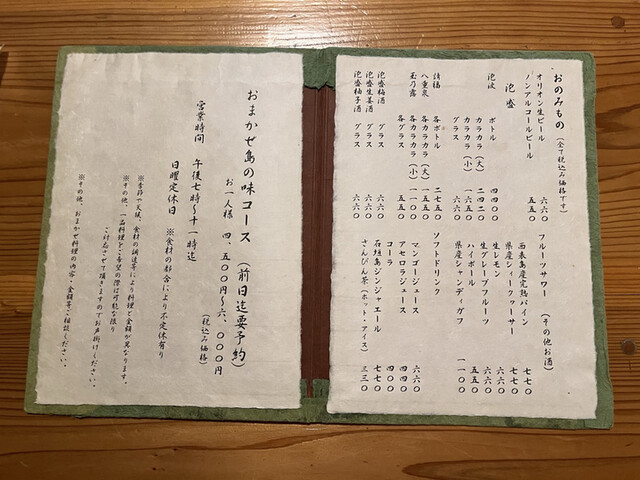 おのみもの（全て税込み価格です）
オリオン生ビール 六六〇
ノンアルコールビール 五五〇
泡盛
泡波 ボトル 四四〇〇
カラカラ（大） 二四二〇
カラカラ（小） 一六五〇
グラス 六六〇
請福 各ボトル 二七五〇
八重泉 各カラカラ（大）
玉乃露 各カラカラ（小）
各グラス 五五〇
泡盛梅酒 グラス 六六〇
泡盛生姜酒 グラス 六六〇
泡盛柚子酒 グラス 六六〇
フルーツサワー（その他お酒）
西表島産完熟パイン 七七〇
県産シークヮーサー 七七〇
生レモン 六六〇
生グレープフルーツ 六六〇
ハイボール 五五〇
県産シャンディガフ 一一〇〇
ソフトドリンク
マンゴージュース 六六〇
アセロラジュース 四四〇
コーラ 四四〇
石垣島ジンジャエール 七七〇
さんぴん茶（ホット・アイス） 三三〇
おまかせ島の味コース（前日迄要予約）
お一人様 四、五〇〇円〜六、〇〇〇円
（税込み価格）
営業時間 午後七時〜十一時迄
日曜定休日 ※食材の都合により不定休有り
※季節や天候、食材の調達等により料理と金額が異なります。
※その他、一品料理をご希望の際は可能な限り
ご対応させて頂きますのでお声掛けください。
※その他、おまかせ料理の内容・金額等ご相談ください。